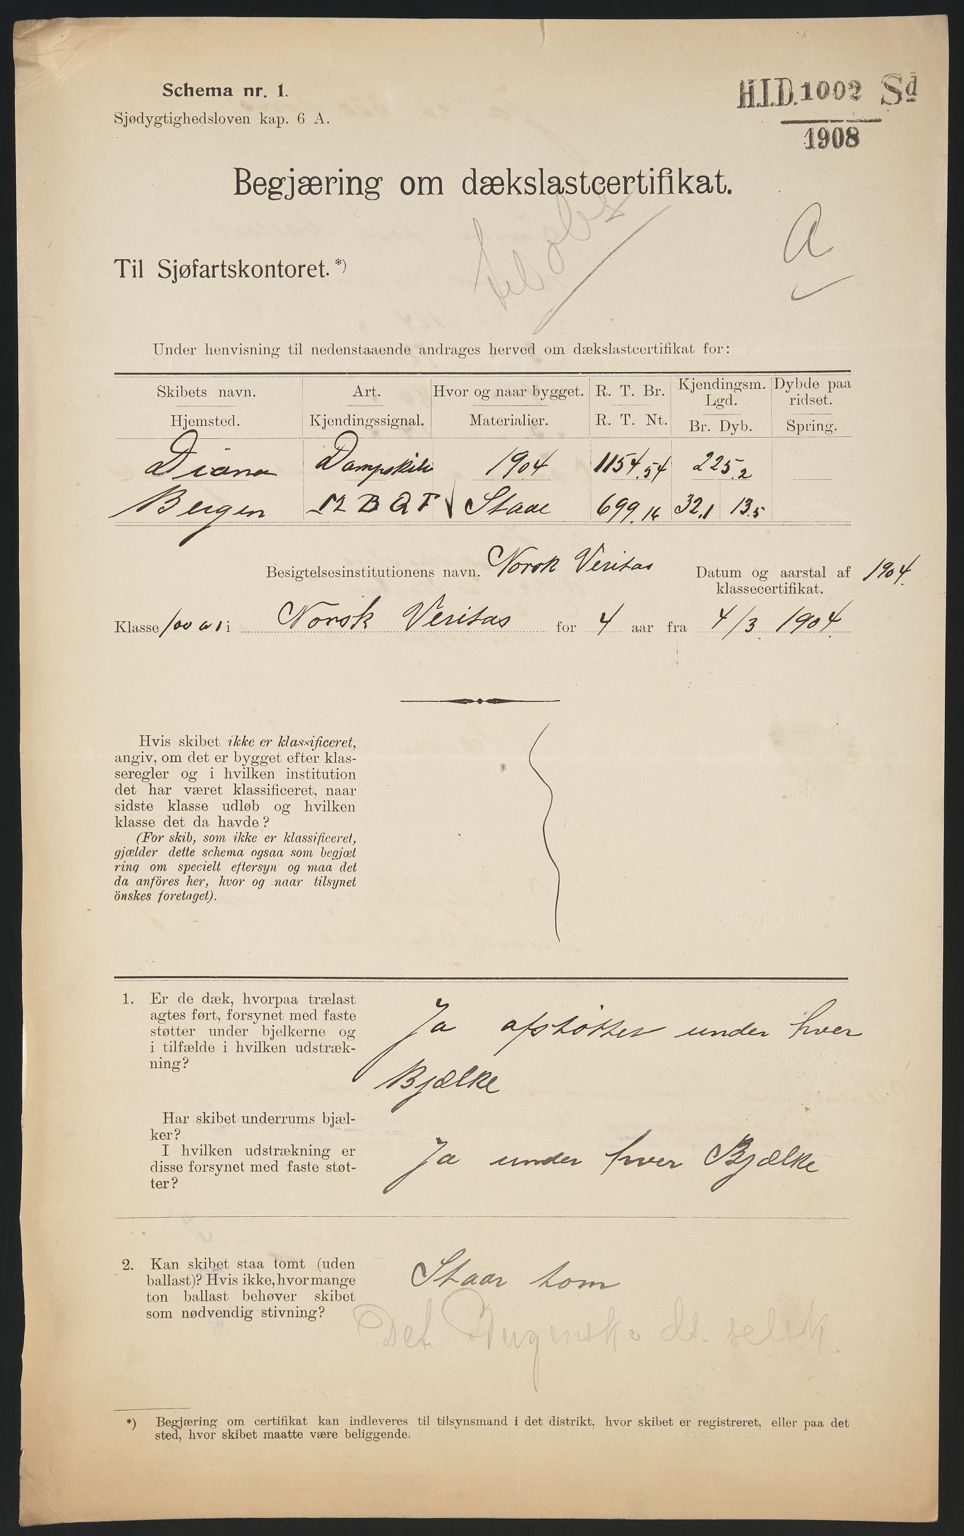 Schema nr. 1.
Sjødygtighedsloven kap. 6 A.
H.I.D. 1002 Sd
1908
Begjæring om dækslastcertifikat.
A
Til Sjøfartskontoret.*)
Under henvisning til nedenstaaende andrages herved om dækslastcertifikat for:
Skibets navn. Art. Hvor og naar bygget. R. T. Br. Kjendingsm. Lgd. Dybde paa ridset.
Hjemsted. Kjendingssignal. Materialier. R. T. Nt. Br. Dyb. Spring.
Diana Dampskib 1904 1154.54 225.2
Bergen M B Q F Staal 699.16 32.1 13.5
Besigtelsesinstitutionens navn. Norsk Veritas Datum og aarstal af klassecertifikat. 1904.
Klasse 100 a 1 i Norsk Veritas for 4 aar fra 4/3 1904.
Hvis skibet ikke er klassificeret,
angiv, om det er bygget efter klas-
seregler og i hvilken institution
det har været klassificeret, naar
sidste klasse udløb og hvilken
klasse det da havde?
(For skib, som ikke er klassificeret,
gjælder dette schema ogsaa som begjæt
ring om specielt eftersyn og maa det
da anföres her, hvor og naar tilsynet
önskes foretaget).
1. Er de dæk, hvorpaa trælast
agtes ført, forsynet med faste
støtter under bjelkerne og
i tilfælde i hvilken udstræk-
ning?
Ja afstøttet under hver
Bjælke
Har skibet underrums bjæl-
ker?
I hvilken udstrækning er
disse forsynet med faste støt-
ter?
Ja under hver Bjælke
2. Kan skibet staa tomt (uden
ballast)? Hvis ikke, hvor mange
ton ballast behøver skibet
som nødvendig stivning?
Staar tom
Det ds. selsk.
*) Begjæring om certifikat kan indleveres til tilsynsmand i det distrikt, hvor skibet er registreret, eller paa det
sted, hvor skibet maatte være beliggende.